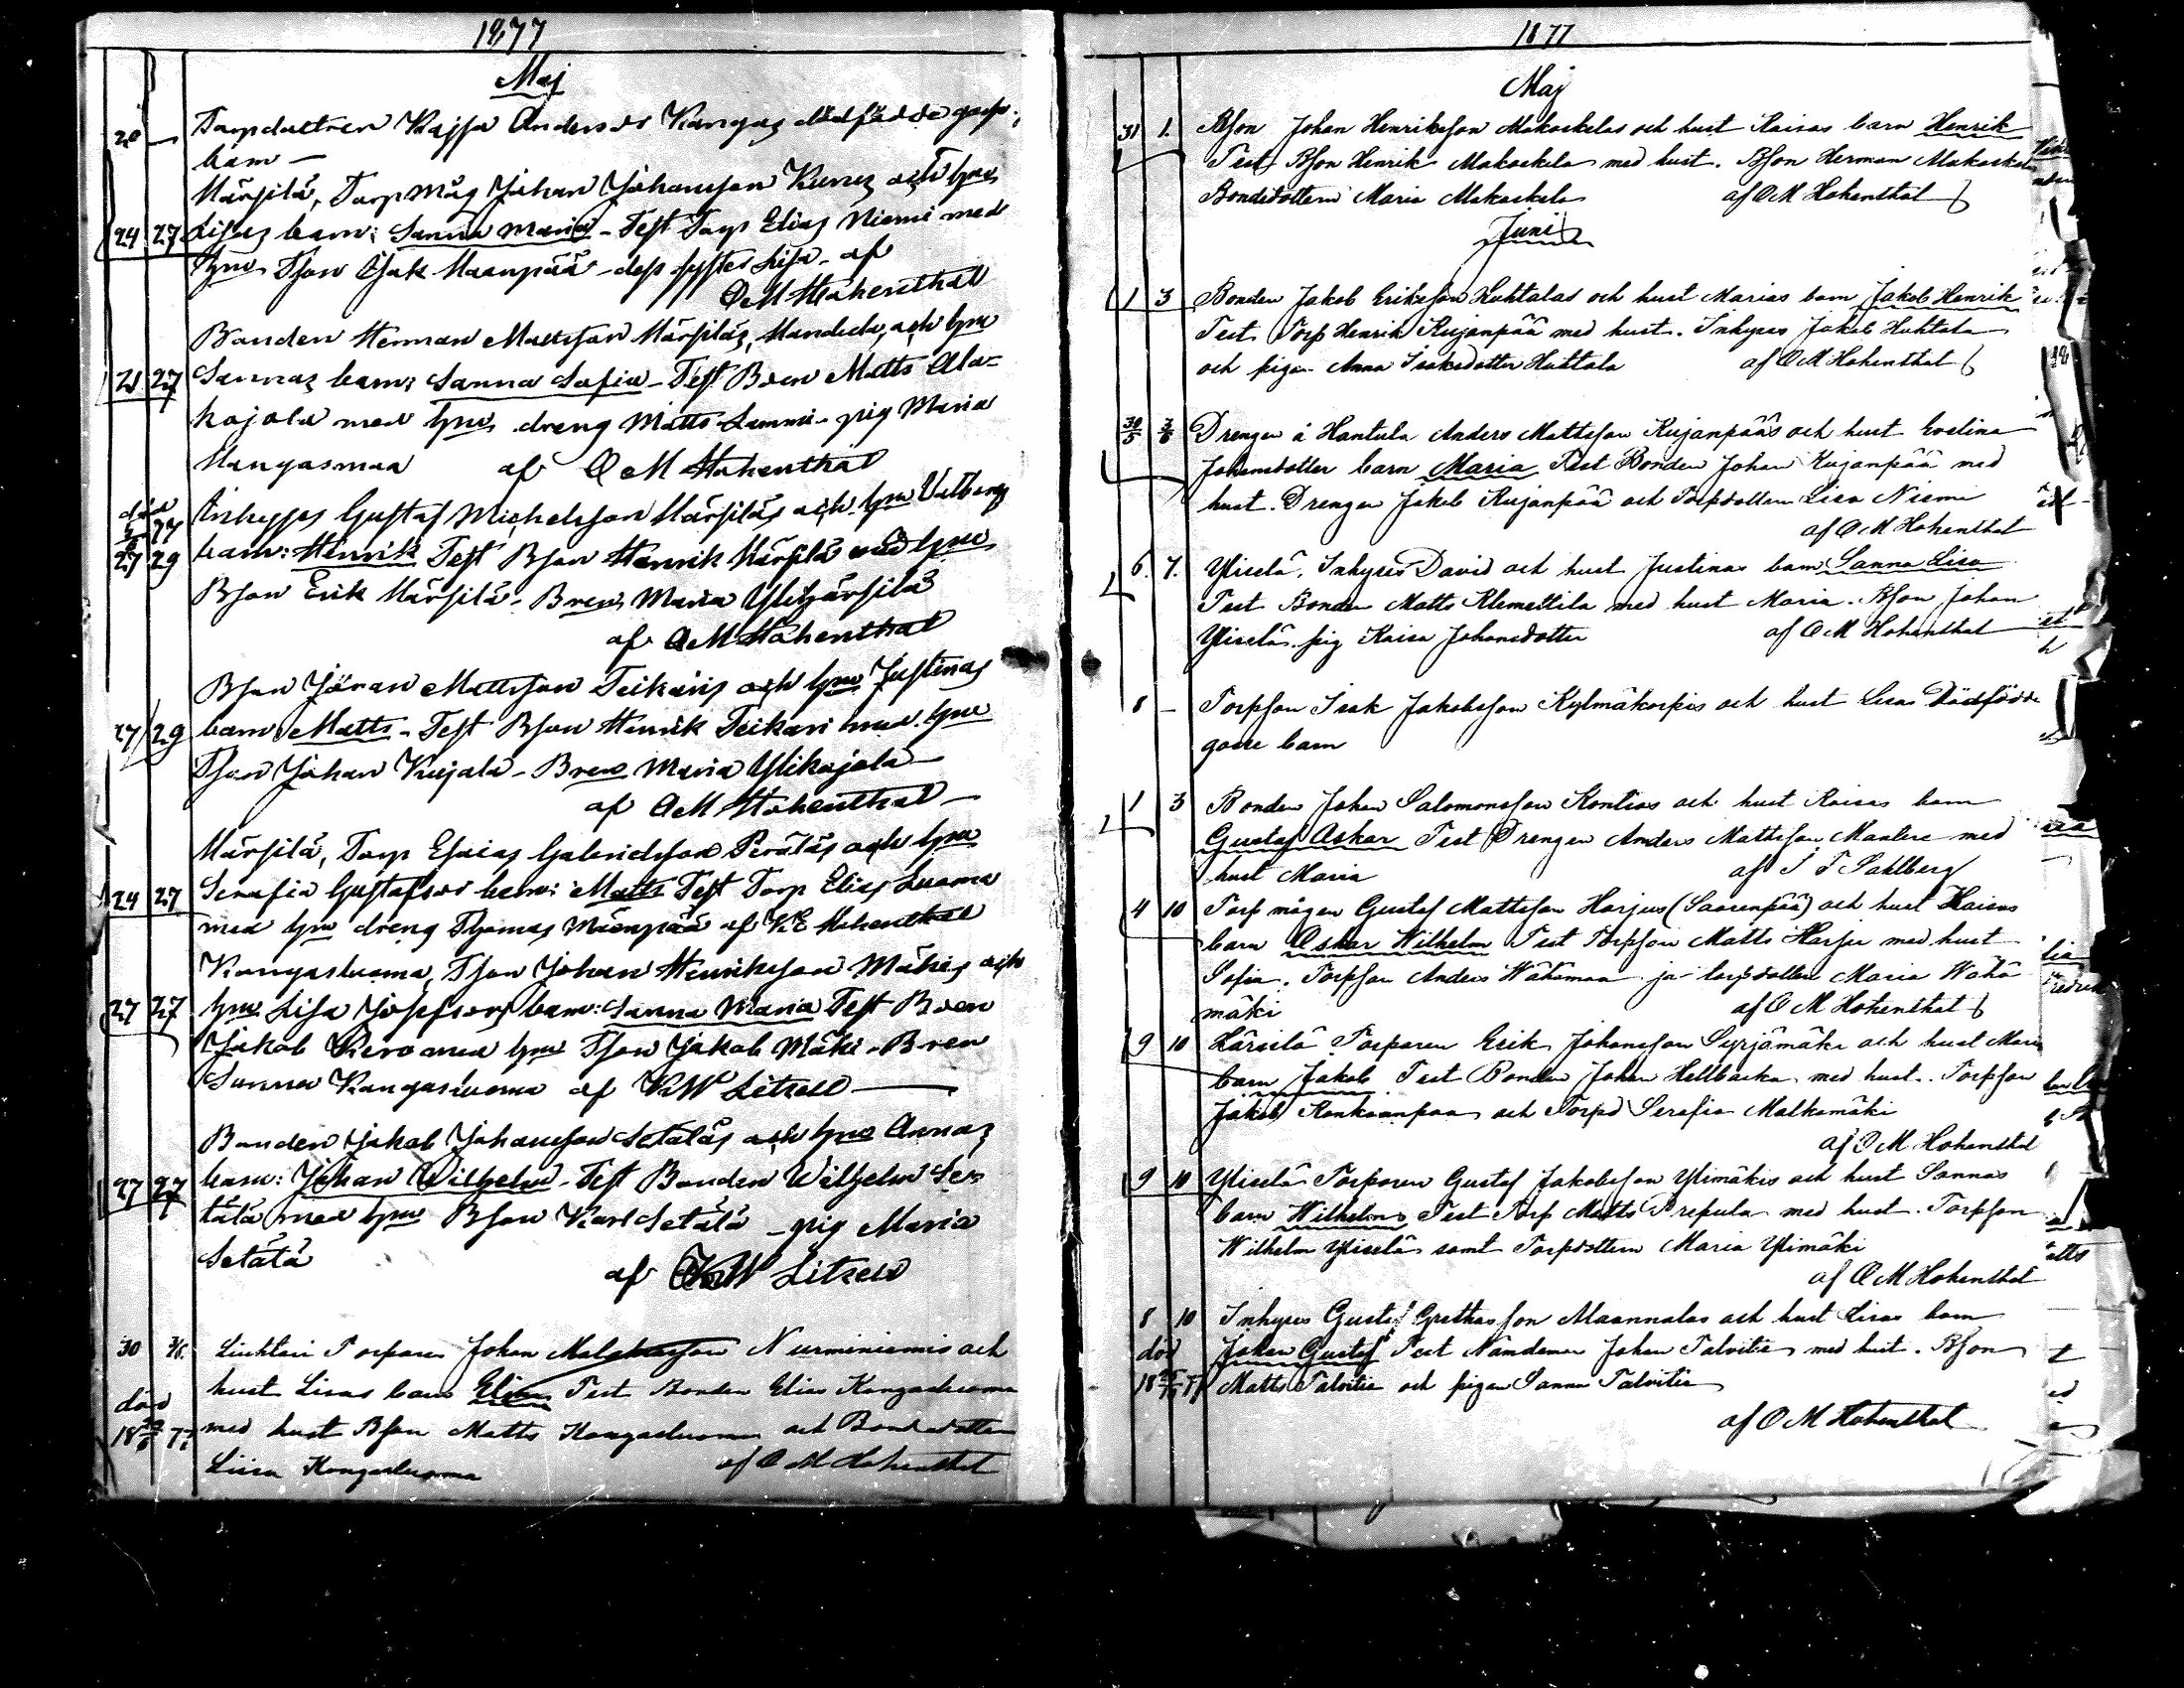 1877
Maj
20 — Torpdottren Kajsa Andersdr Kangas dödfödde gosse-
barn —
Härsilä, Torpmåg Johan Johansson
24 27 Lisas barn: Sanna Maria - Test Torp Elias Niemi med
hru Tson Isak Maanpää - dess syster Lisa - af
O M Hohenthal
Bonden Herman Mattsson Härsiläs, Mandelas, och hru
21 27 Sannas barn: Sanna Sofia - Test Bden Matts Ala-
kojola med hru dreng Matts Lammi - pig Maria
Kangasmaa af O M Hohenthal
död
Inhyses Gustaf Michelsson Härsiläs och hru Valborgs
27 29 barn: Henrik Test Bson Henrik Härsilä med hru
Bson Erik Härsilä - Bren Maria Ylihärsilä
af O M Hohenthal
Bson Jöran Mattsson Teikaris och hru Justinas
27 29 barn Matts - Test Bson Henrik Teikari med hru
Tson Johan Kujala - Bren Maria Ylikojola
af O M Hohenthal —
Härsilä, Torp Esaias Gabrielsson Peräläs och hru
24 27 Serafia Gustafsdr barn: Matts Test Torp Elias Luoma
med hru dreng Thomas Mäenpää af K E Hohenthal
Kangasluoma, Tson Johan Henriksson Mäkis och
27 27 hru Lisa Josefsdrs barn: Sanna Maria Test Bden
Jakob Kero med hru Tson Jakob Mäki - Bren
Sanna Kangasluoma af K W Litzell —
Bonden Jakob Johansson Setäläs och hru Annas
27 27 barn: Johan Wilhelm - Test Bonden Wilhelm Se-
tälä med hru Bson Karl Setälä - pig Maria
Setälä af K W Litzell
30 3/6. Liuhtari Torparen Johan Nurminiemis och
hust Lisas barn Elias Test Bonden Elias Kangasluoma
död
med hust Bson Matts Kangasluoma och Bondedotter
Liisa Kangasluoma af O M Hohenthal
1877
Maj
31 1. Bson Johan Henriksson Makoskelas och hust Kaisas barn Henrik
Test Bson Henrik Makoskela med hust. Bson Herman Makoskela
Bondedottern Maria Makoskela af O M Hohenthal
Juni
1 3 Bonden Jakob Eriksson Huhtalas och hust Marias barn Jakob Henrik
Test Torp Henrik Kujanpää med hust. Inhyses Jakob Huhtala
och pigan Anna Isaksdotter Huhtala af O M Hohenthal
30/5 3/6 Drengen å Hantula Anders Mattsson Kujanpääs och hust Evelina
Johansdotter barn Maria Test Bonden Johan Kujanpää med
hust. Drengen Jakob Kujanpää och Torpdottern Lisa Niemi
af O M Hohenthal
6. 7. Yliselä. Inhyses David och hust Justinas barn Sanna Lisa
Test Bonden Matts Klemettila med hust Maria. Bson Johan
Yliselä. pig Kaisa Johansdotter af O M Hohenthal
8 — Torpson Isak Jakobsson Kylmäkorpis och hust Lisas Dödfödde
gosse barn
1 3 Bonden Johan Salomonsson Kontios och hust Kaisas barn
Gustaf Oskar Test Drengen Anders Mattsson Mantere med
hust Maria af I T Sahlberg
4 10 Torp mågen Gustaf Mattsson Harjus (Saarenpää) och hust Kaisas
barn Oskar Wilhelm Test Torpson Matts Harju med hust
Sofia. Torpson Anders Wähämaa ja torpdotter Maria Wähä
mäki af O M Hohenthal
9 10 Härsilä Torparen Erik Johansson Syrjämäki och hust Maria
barn Jakob Test Bonden Johan Hellbacka med hust. Torpson
Jakob Konkaanpaa och Torpd Serafia Malkamäki
af O M Hohenthal
9 10 Yliselä Torparen Gustaf Jakobsson Ylimäkis och hust Sannas
barn Wilhelm Test Torp Matts Prepula med hust. Torpson
Wilhelm Yliselä samt Torpdottern Maria Ylimäki
af O M Hohenthal
8 10 Inhyses Gustaf Grethasson Maannalas och hust Lisas barn
död Johan Gustaf Test Nämdeman Johan Talvitie med hust. Bson
Matts Talvitie och pigan Sanna Talvitie
af O M Hohenthal